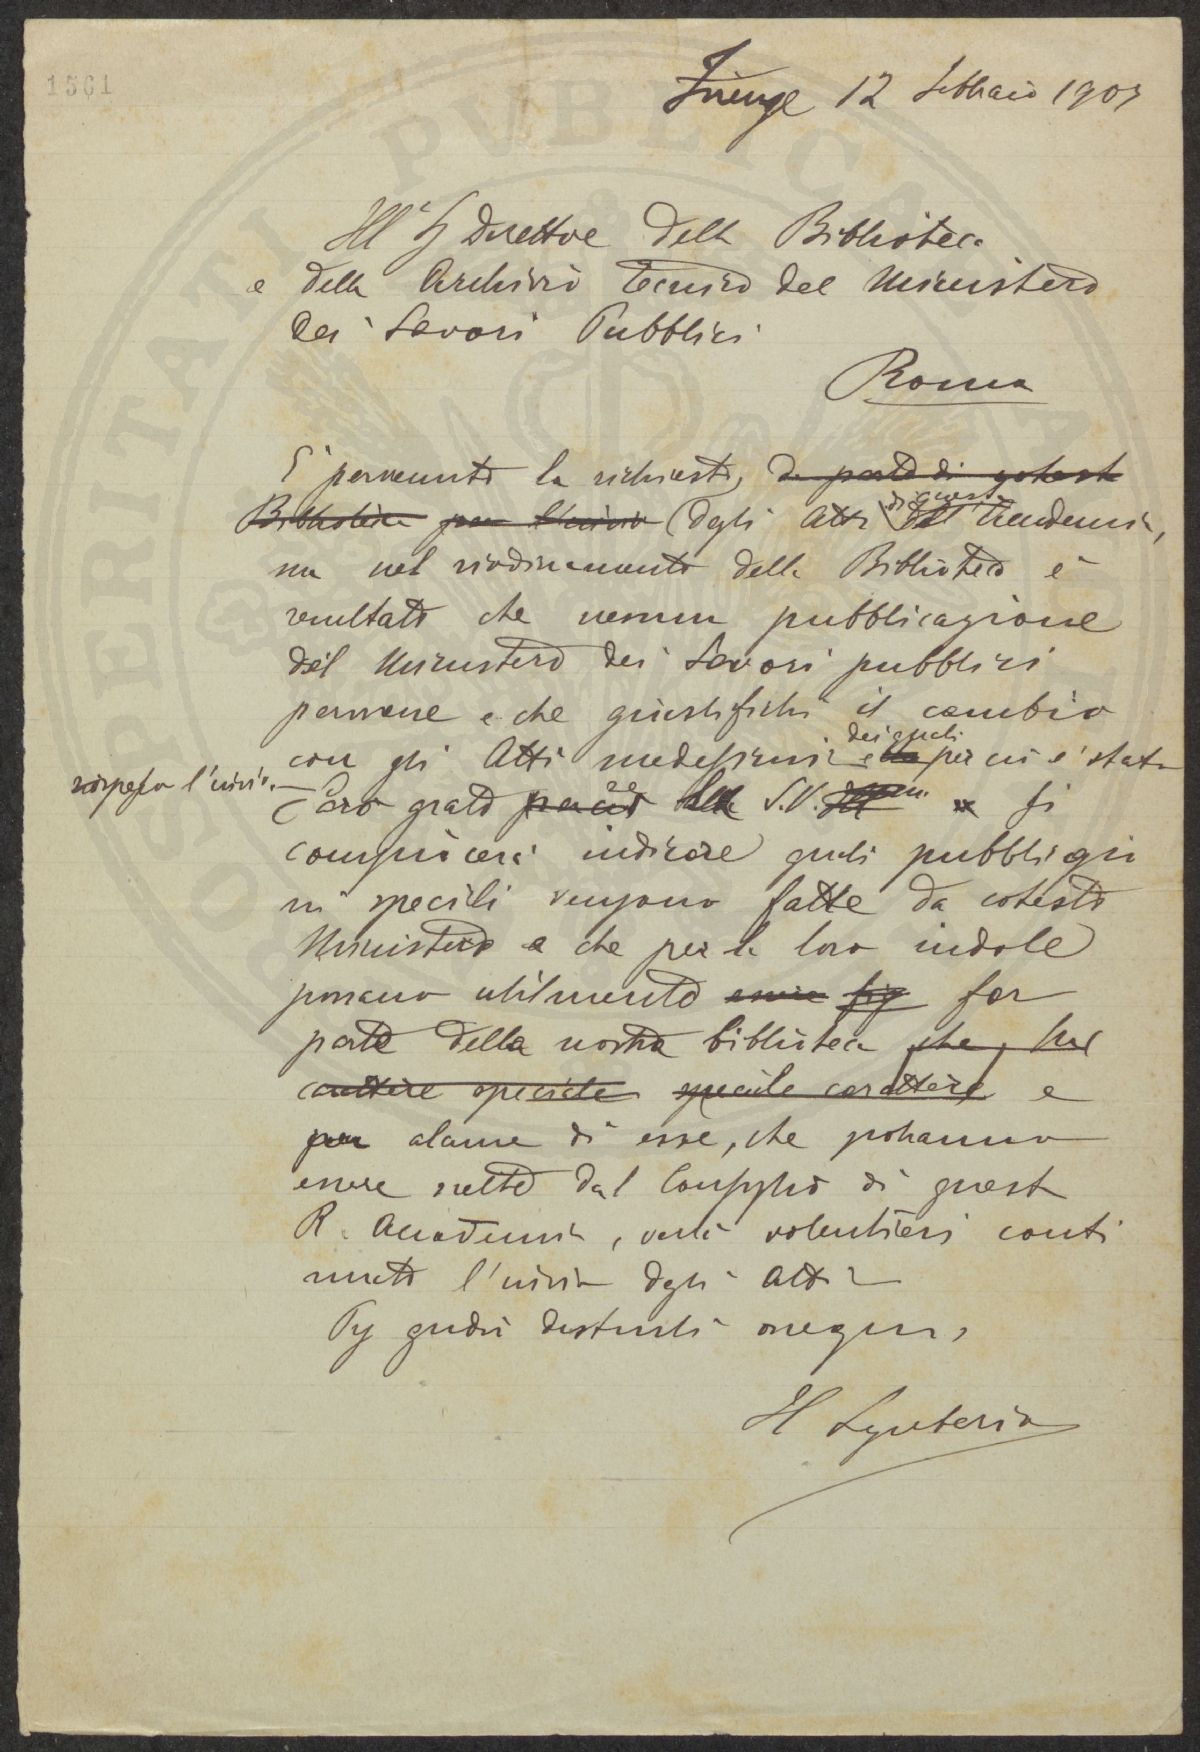 1561
Firenze 12 febbraio 1903
Ill Sg Direttore della Biblioteca
e della Archivio Tecnico del Ministero
dei Lavori Pubblici
Roma
E' pervenuta la richiesta, da parte di cotesta
Biblioteca per l'invio (degli Atti di questa Accademia,
ma nel riordinamento della Biblioteca è
resultato che nessuna pubblicazione
del Ministero dei Lavori pubblici
perviene e che giustifichi il cambio
con gli Atti medesimi dei quali per cui è stato
sospeso l'invio.
Sarò grato perciò alla S.V. se si
compiacerà indicare quali pubblicazio
ni speciali vengono fatte da cotesto
Ministero e che per la loro indole
possano utilmente essere far
parte della nostra biblioteca che, pel
carattere speciale speciale carattere e
per alcune di esse, che potranno
essere scelte dal Consiglio di questa
R. Accademia, verrà volentieri conti
nuato l'invio degli Atti
Pg gradii distinti ossequi,
Il Segretario
PERITATI PVBLICA